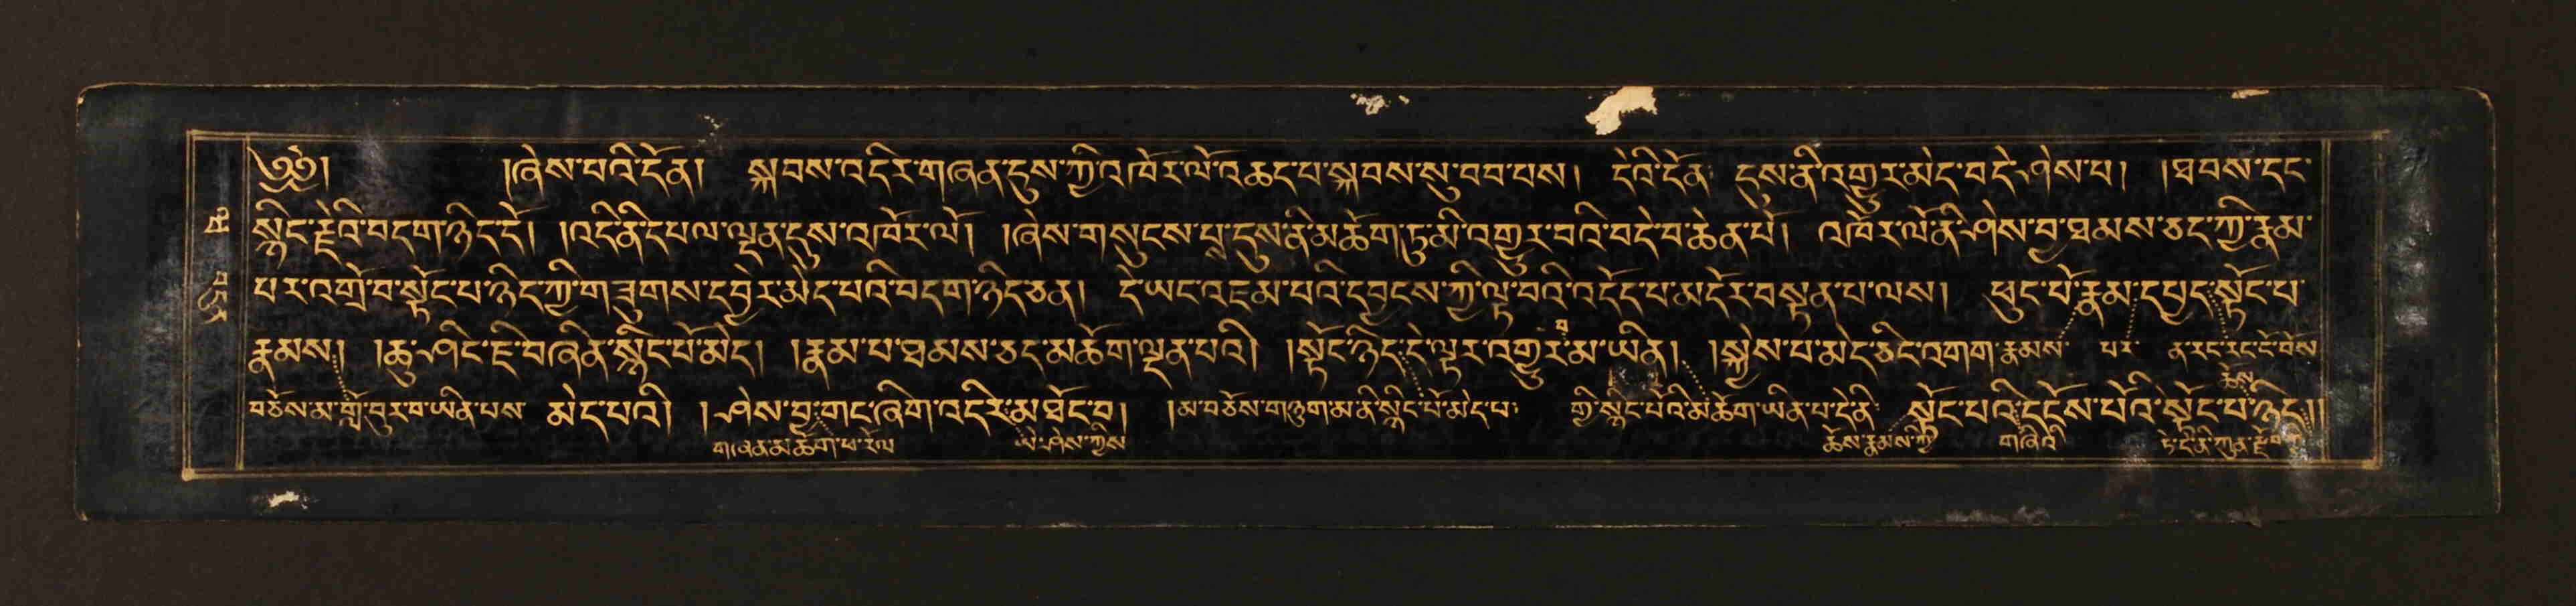 ༄༅། །ཞེས་པའི་དོན། སྐབས་འདིར་གཞན་དུས་ཀྱི་འཁོར་ལོ་འཆད་པ་སྐབས་སུ་བབ་པས། དེའི་དོན་ དུས་ནི་འགྱུར་མེད་བདེ་ཤེས་པ། །ཐབས་དང་
སྙིང་རྗེའི་བདག་ཉིད་དེ། །འདི་ནི་དཔལ་ལྡན་དུས་འཁོར་ལོ། །ཞེས་གསུངས་པ་དུས་ནི་མཆོག་ཏུ་མི་འགྱུར་བའི་བདེ་བ་ཆེན་པོ། འཁོར་ལོ་ནི་ཤེས་བྱ་ཐམས་ཅད་ཀྱི་རྣམ་
པར་འགྲོ་བ་སྟོང་པ་ཉིད་ཀྱི་གཟུགས་དབྱེར་མེད་པའི་བདག་ཉིད་ཅན། དེ་ཡང་འཇམ་པའི་དབྱངས་ཀྱི་ལྟ་བའི་འདོད་པ་མདོར་བསྟན་པ་ལས། ཕུང་པོ་རྣམ་དཔྱད་སྟོང་པ་
རྣམས། །ཆུ་ཤིང་ཇི་བཞིན་སྙིང་པོ་མེད། །རྣམ་པ་ཐམས་ཅད་མཆོག་ལྡན་པའི། །སྟོང་ཉིད་དེ་ལྟར་འགྱུར་མ་ཡིན། །སྐྱེས་པ་མེད་ཅིང་འགག་རྣམས་ པར་ ན་རང་རང་ངོ་བོས་
བཅོས་མ་གློ་བུར་བ་ཡིན་པས་ མེད་པའི། །ཤེས་བྱ་གང་ཞིག་འདིར་མཐོང་བ། །མ་བཅོས་གཉུག་མ་ནི་སྙིང་པོ་མེད་པ་ ཀྱི་སྙིང་པོའི་མཆོག་ཡིན་པ་དེ་ནི་ སྟོང་པའི་དངོས་པོའི་སྟོང་པ་ཉིད།།
གཞན་མཆོག་ཕ་རོལ་ ཡེ་ཤེས་ཀྱིས་ ཆོས་རྣམས་ཀྱི་ གཞིའི་